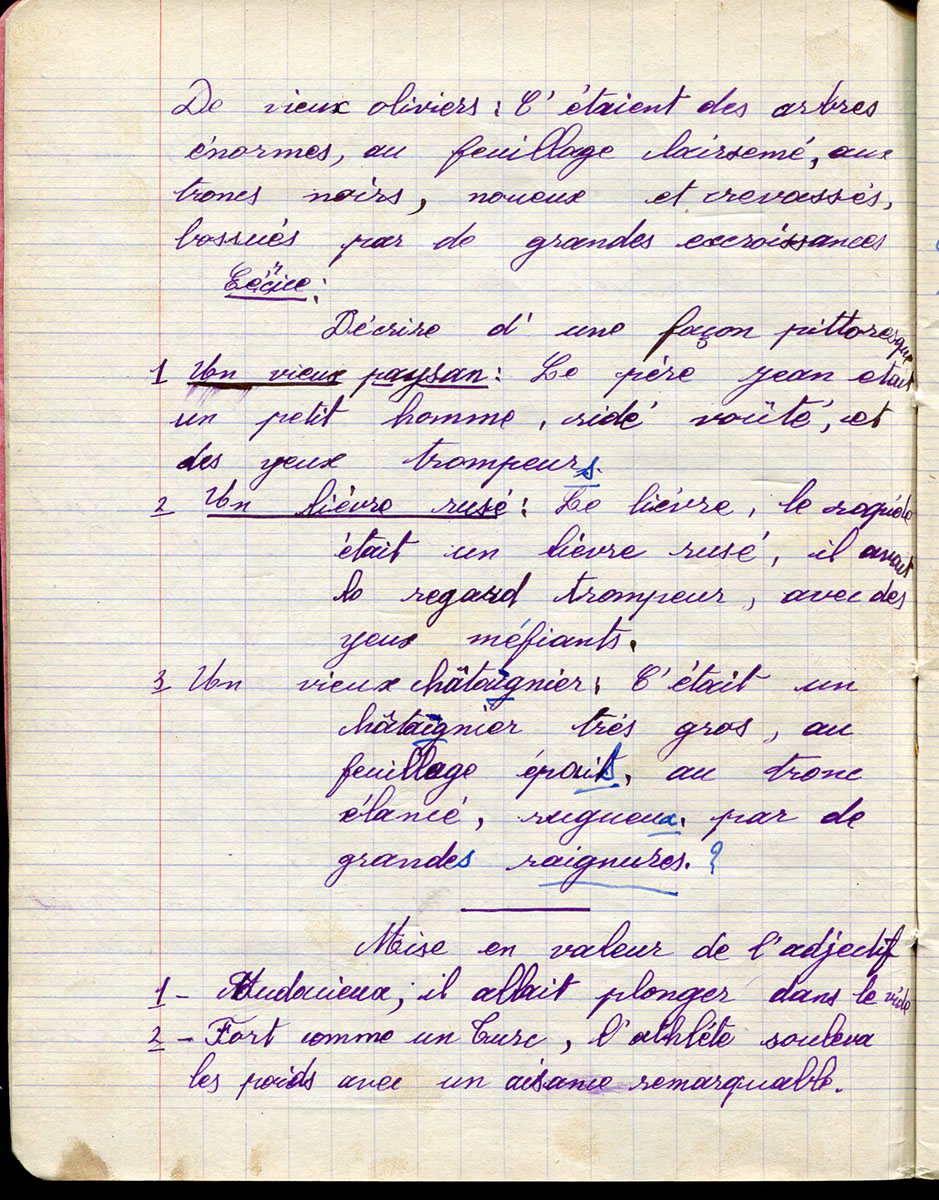 De vieux oliviers : C'étaient des arbres
énormes, au feuillage clairsemé, aux
troncs noirs, noueux et crevassés,
bossués par de grandes excroissances
Décrire d'une façon pittoresque
1 Un vieux paysan : Le père Jean etait
un petit homme, ridé voûté, et
des yeux trompeurs.
2 Un lièvre rusé : Le lièvre, le rapide
était un lièvre rusé, il avait
le regard trompeur, avec des
yeux méfiants.
3 Un vieux châtaignier : C'était un
châtaignier trés gros, au
feuillage épais, au tronc
élancé, rugueux, par de
grandes raignures. ?
Mise en valeur de l'adjectif
1 - Audacieux, il allait plonger dans le vide
2 - Fort comme un Turc, l'athléte souleva
les poids avec un aisance remarquable.